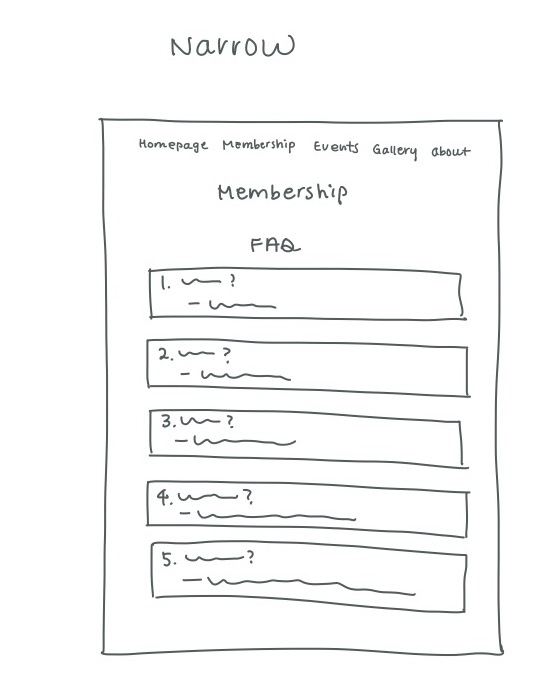 Narrow
Homepage Membership Events Gallery about
Membership
FAQ
1. ?
-
2. ?
-
3. ?
-
4. ?
-
5. ?
-